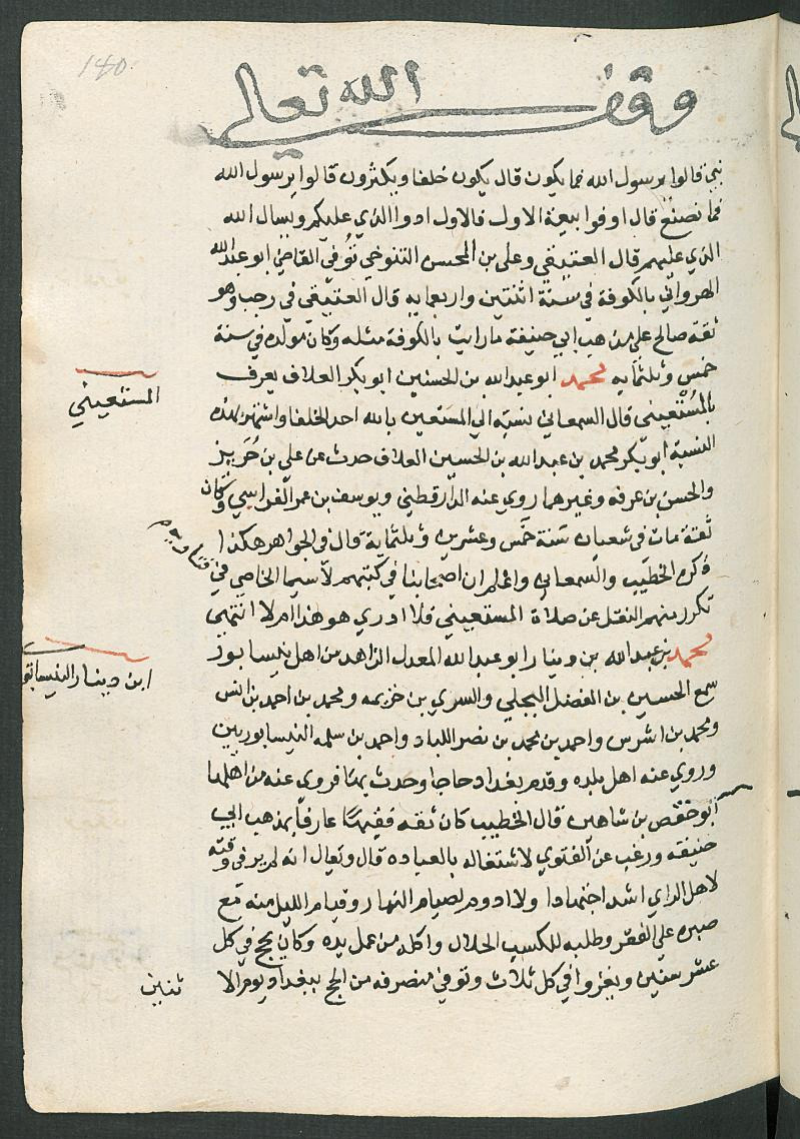 140
وقف الله تعالى
نبي قالوا يرسول الله فما يكون قال يكون خلفا ويكثرون قالوا يرسول الله
فما نصنع قال اوفوا ببيعة الاول فالاول ادوا الذي عليكم وليسال الله
الذي عليهم قال العتيقي وعلي بن المحسن التنوخي توفي القاضي ابو عبد الله
الهرواني بالكوفة في سنة اثنتين واربعمايه قال العتيقي في رجب وهو
ثقة صالح على مذهب ابي حنيفة ما رايت بالكوفة مثله وكان مولده في سنة
خمس وثلثمايه محمد ابو عبد الله بن الحسين ابو بكر العلاف يعرف
بالمستعيني قال السمعاني نسبة الي المستعين بالله احد الخلفا واشتهر بهذه
النسبة ابو بكر محمد بن عبد الله بن الحسين العلاف حدث عن علي بن حرب
والحسن بن عرفه وغيرهما روي عنه الدارقطني ويوسف بن عمر القواسي وكان
ثقة مات في شعبان سنة خمس وعشرين وثلثماية قال في الجواهر هكذا
ذكره الخطيب والسمعاني واعلم ان اصحابنا في كتبهم لا سيما الخاصي في فتاويهم
تكرر منهم النقل عن صلاة المستعيني فلا ادري هو هذا ام لا انتهى
محمد بن عبد الله بن دينار ابو عبد الله المعدل الزاهد من اهل نيسابور
سمع الحسين بن الفضل البجلي والسري بن خزيمه ومحمد بن احمد بن انس
ومحمد بن اشرس واحمد بن محمد بن نصر اللباد واحمد بن سلمه النيسابوريين
وروي عنه اهل بلده وقدم بغداد حاجا وحدث بها فروي عنه من اهلها
ابو حفص بن شاهين قال الخطيب كان ثقه فقيها عارفا بمذهب ابي
حنيفه ورغب عن الفتوي لاشتغاله بالعباده قال ويقال انه لم ير في وقته
لاهل الراي اشد اجتهادا ولا ادوم لصيام النهار وقيام الليل منه مع
صبره علي الفقر وطلبه للكسب الحلال واكله من عمل يده وكان يحج في كل
عشر سنين ويغزوا في كل ثلاث وتوفي منصرفه من الحج ببغداد يوم الا
ثنين
المستعيني
ابن دينار النيسابوري